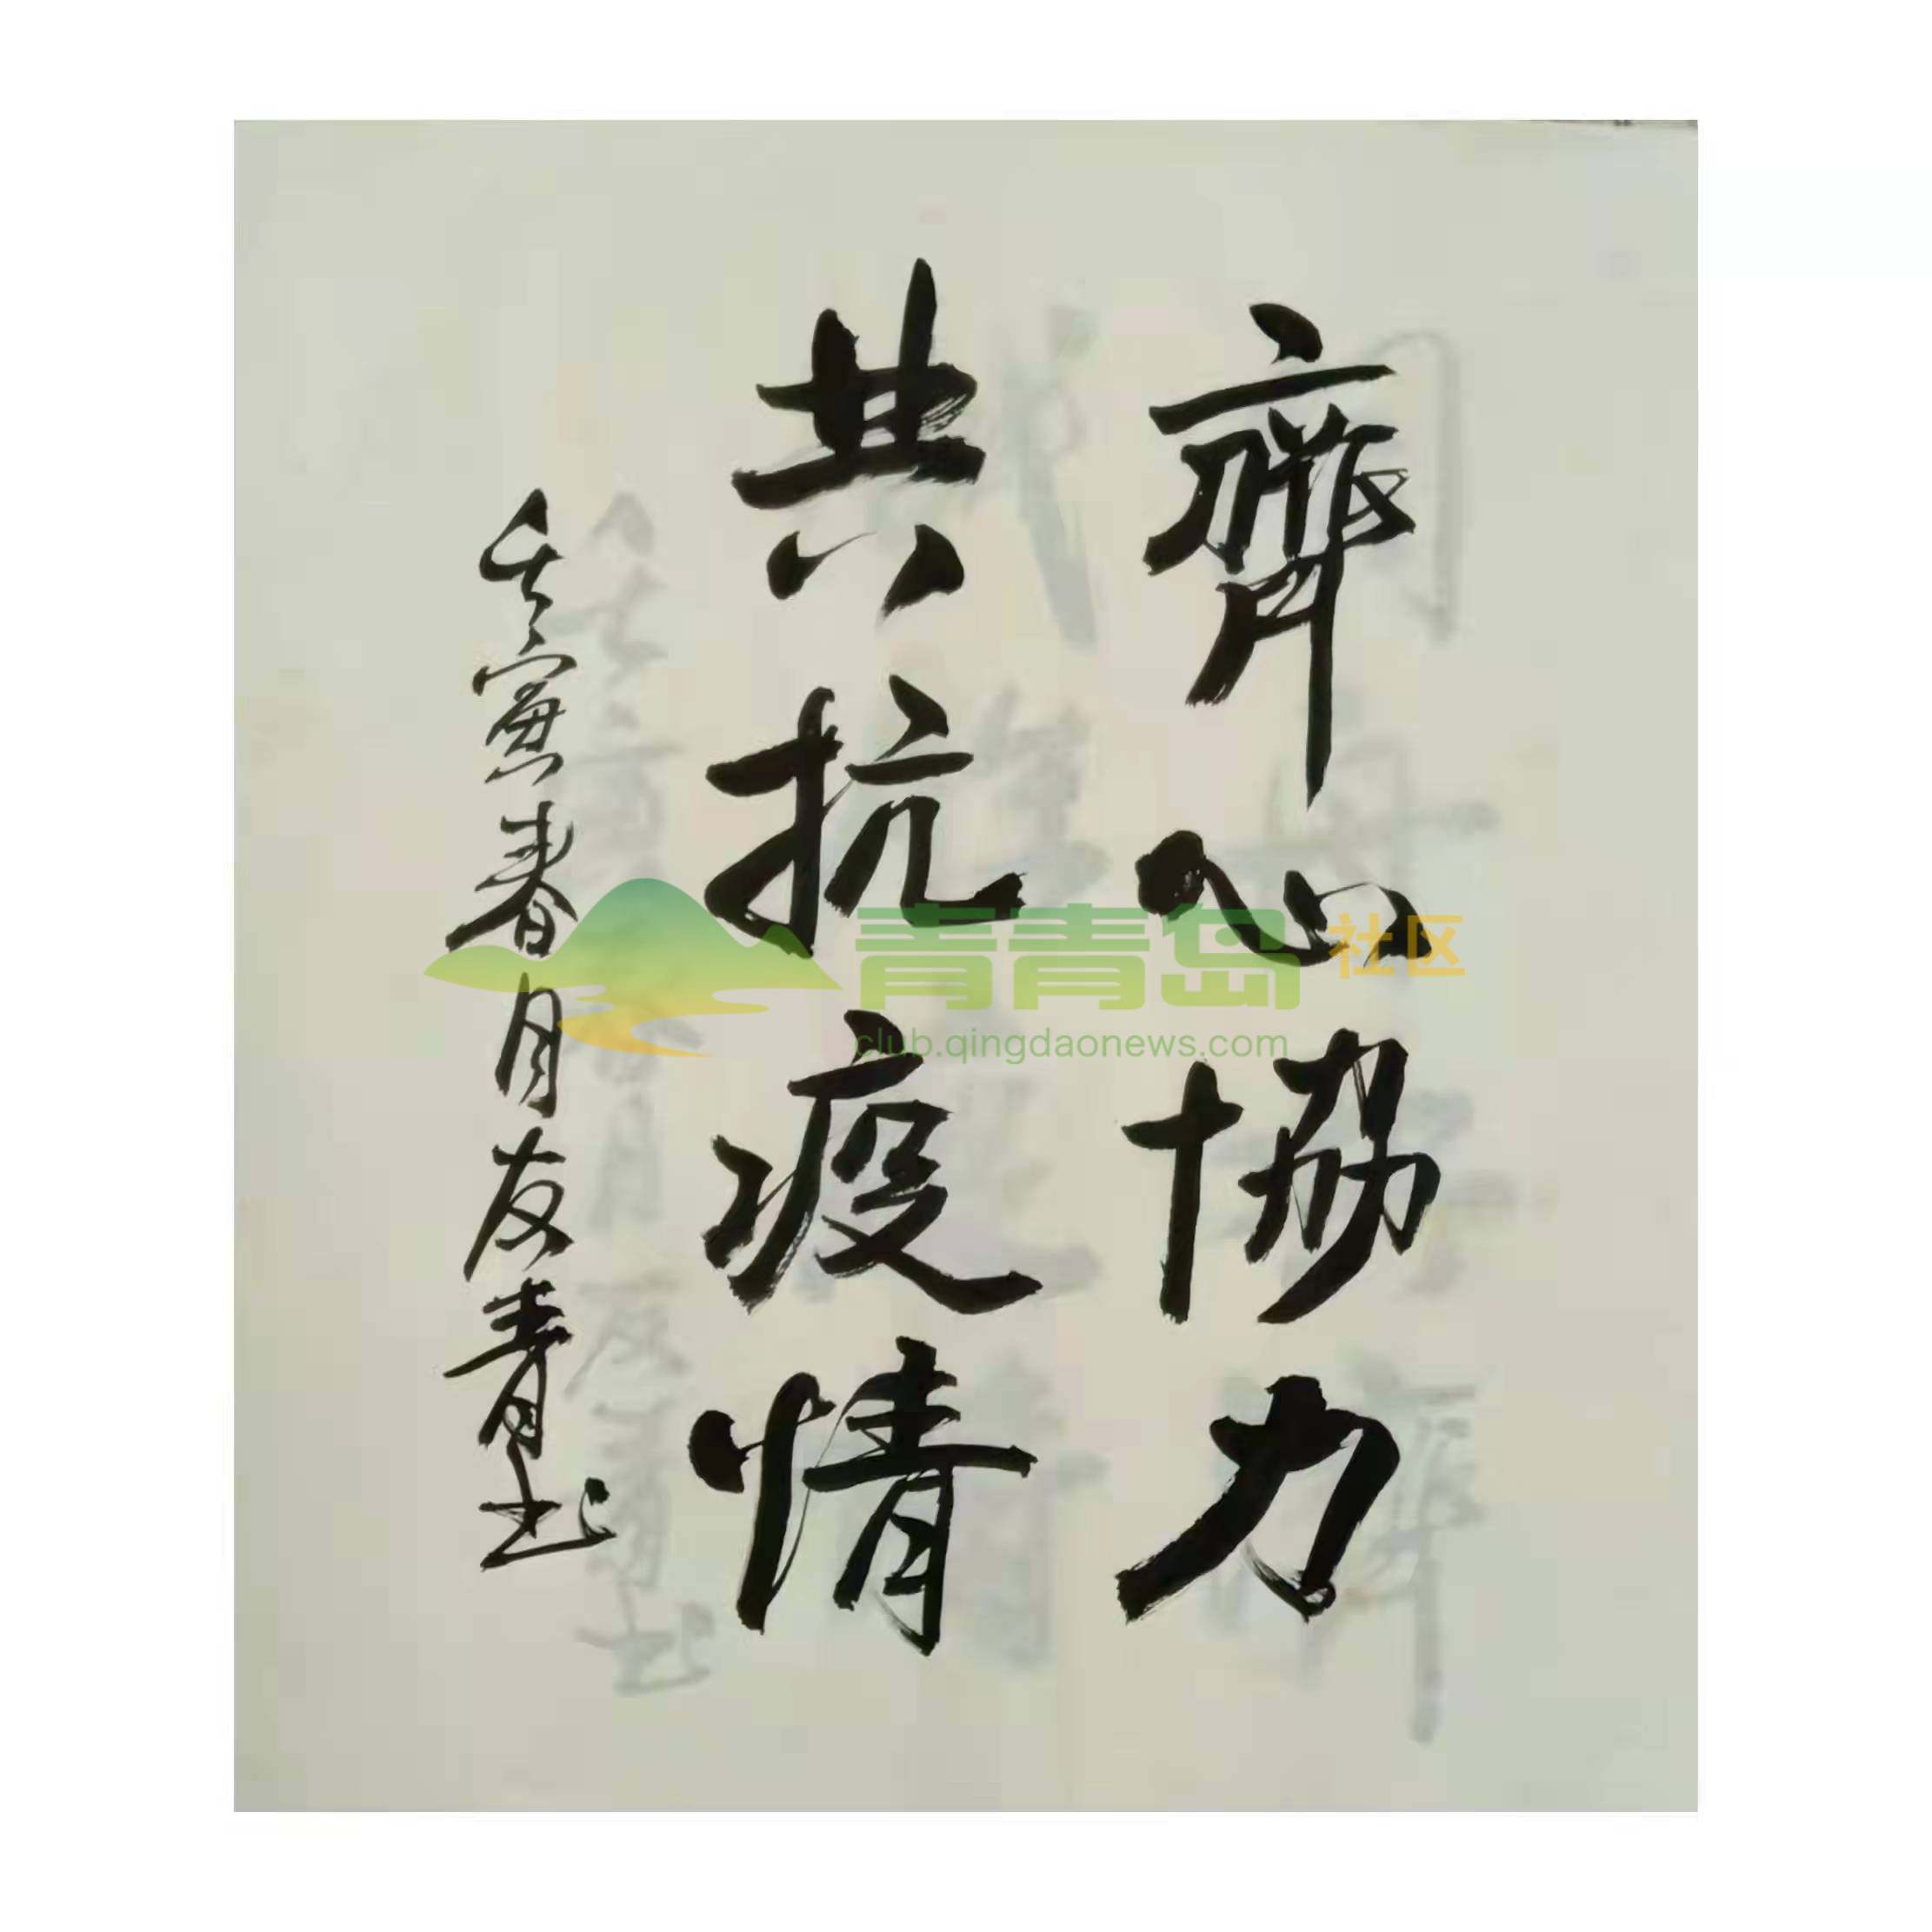 齊心協力
共抗疫情
壬寅春月友青书
青青岛社区
club.qingdaonews.com